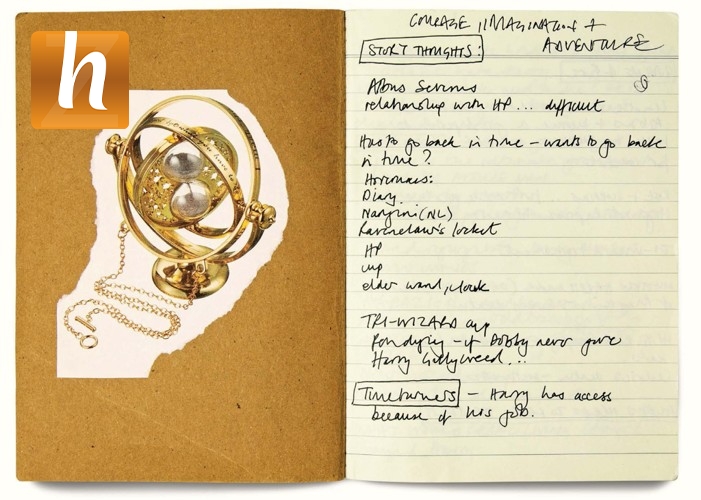 h
COURAGE, IMAGINATION +
ADVENTURE
STORY THOUGHTS:
Albus Severus
relationship with HP... difficult
Has to go back in time – wants to go back
in time?
Horcruxes:
Diary
Nangini (NL)
Ravenclaw's locket
HP
cup
elder wand, cloak
TRI-WIZARD cup
Ron dying – if Dobby never gave
Harry Gillyweed...
Timeturners – Harry has access
because of his job.